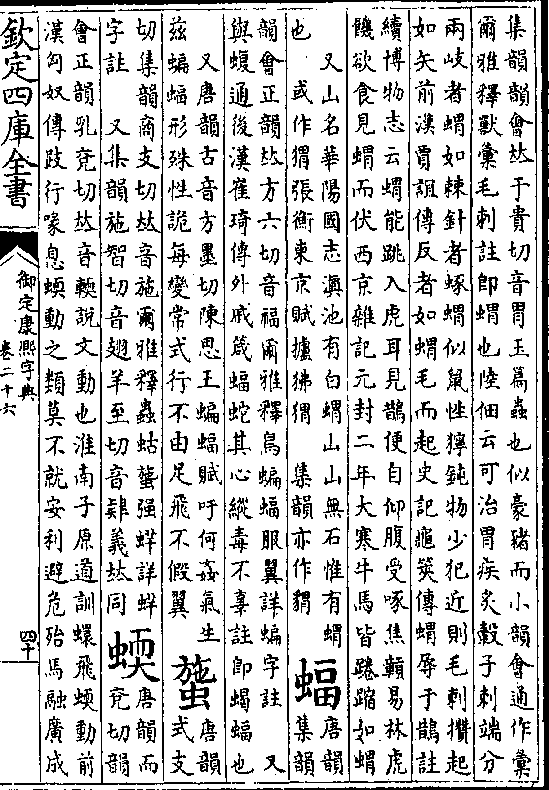 集韻韻會𠀤于貴切音胃玉篇蟲也似豪豬而小韻會通作彙
爾雅釋獸彙毛刺註卽蝟也陸佃云可治胃疾炙轂子刺端分
兩岐者蝟如棘針者蝟似鼠性獰鈍物少犯近則毛刺攢起
如矢前漢賈誼傳反者如蝟毛而起史記龜筴傳蝟辱于鵲註
續博物志云蝟能跳入虎耳見鵲便自仰腹受啄焦贛易林虎
饑欲食見蝟而伏西京雜記元封二年大寒牛馬皆踡蹜如蝟
又山名華陽國志滇池有白蝟山山無石惟有蝟
也 或作猬張衡東京賦攎狒猬 集韻亦作猬
蝠
唐韻
集韻
韻會正韻𠀤方六切音福爾雅釋鳥蝙蝠服翼詳蝙字註 又
與蝮通後漢崔琦傳外戚箴蝠蛇其心縱毒不辜註卽蝎蝠也
又唐韻古音方墨切陳思王蝙蝠賦吁何姦氣生
茲蝙蝠形殊性詭每變常式行不由足飛不假翼
䗐
唐韻
式支
切集韻商支切𠀤音施爾雅釋蟲蛄䗐强蛘詳蛘
字註 又集韻施智切音翅羊至切音肄義𠀤同
蝡
唐韻而
兗切韻
會正韻乳兗切𠀤音輭說文動也淮南子原道訓蠉飛蝡動前
漢匈奴傳跂行喙息蝡動之類莫不就安利避危殆馬融廣成
欽定四庫全書
御定康熙字典
卷二十六
四十